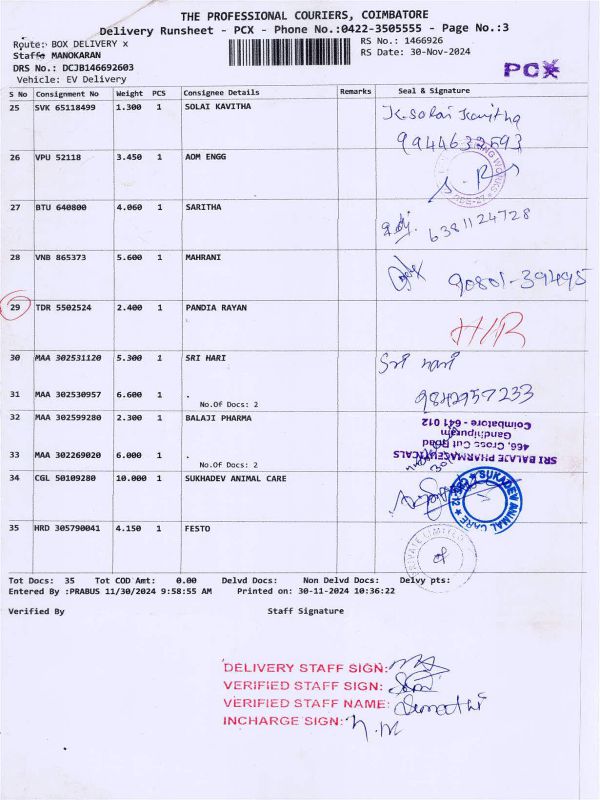 THE PROFESSIONAL COURIERS, COIMBATORE
Delivery Runsheet - PCX - Phone No.:0422-3505555 - Page No.:3
Route: BOX DELIVERY x
RS No.: 1466926
Staff: MANOKARAN
RS Date: 30-Nov-2024
DRS No.: DCJB146692603
Vehicle: EV Delivery
PCX
S No Consignment No Weight PCS Consignee Details Remarks Seal & Signature
25 SVK 65118499 1.300 1 SOLAI KAVITHA K. Solai Kavitha
9944632593
26 VPU 52118 3.450 1 AOM ENGG
27 BTU 640800 4.060 1 SARITHA 6381124728
28 VNB 865373 5.600 1 MAHRANI 90801-39495
29 TDR 5502524 2.400 1 PANDIA RAYAN H/R
30 MAA 302531120 5.300 1 SRI HARI Sri hari
31 MAA 302530957 6.600 1 . 9842957233
No.Of Docs: 2
32 MAA 302599280 2.300 1 BALAJI PHARMA
33 MAA 302269020 6.000 1 .
No.Of Docs: 2
SRI BALAJE PHARMACEUTICALS
466, Cross Cut Road
Gandhipuram
Coimbatore - 641 012
34 CGL 50109280 10.000 1 SUKHADEV ANIMAL CARE
SUKADEV ANIMAL CARE
35 HRD 305790041 4.150 1 FESTO
PRIVATE LIMITED
Tot Docs: 35 Tot COD Amt: 0.00 Delvd Docs: Non Delvd Docs: Delvy pts:
Entered By :PRABUS 11/30/2024 9:58:55 AM Printed on: 30-11-2024 10:36:22
Verified By Staff Signature
DELIVERY STAFF SIGN:
VERIFIED STAFF SIGN:
VERIFIED STAFF NAME:
INCHARGE SIGN: